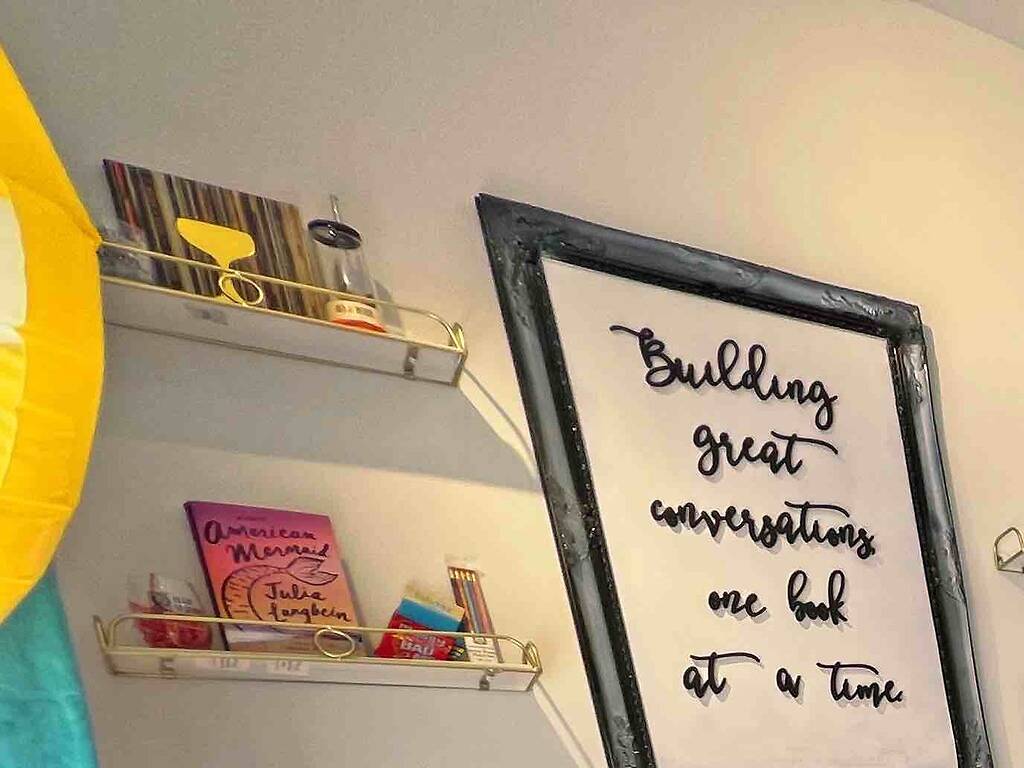 American
Mermaid
Julia
Langbein
Building
great
conversations
one book
at a time.